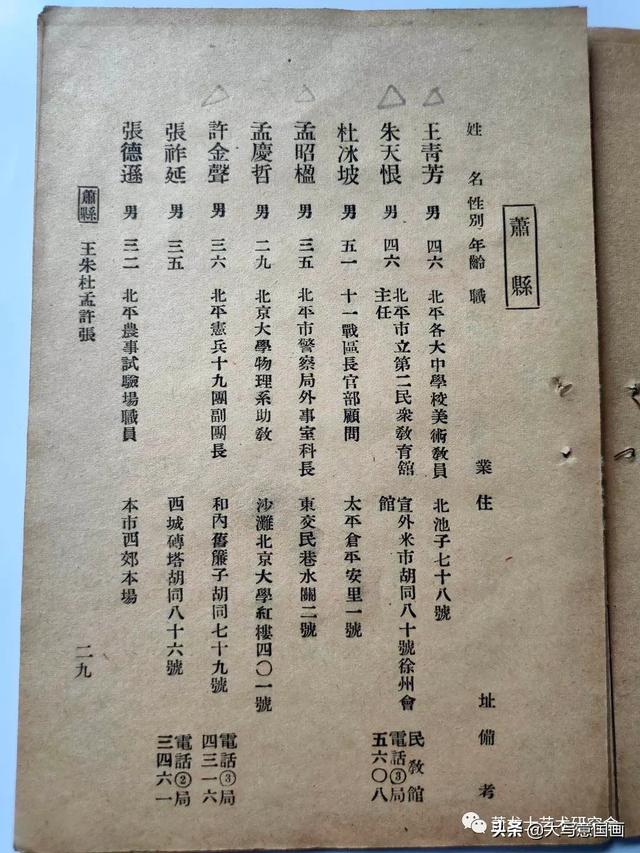 蕭縣
姓名 性別 年齡 職業 住址 備考
王青芳 男 四六 北平各大中學校美術教員 北池子七十八號
朱天恨 男 四六 北平市立第二民衆教育舘主任 宣外米市胡同八十號徐州會館 民教館電話③局五六〇八
杜冰坡 男 五一 十一戰區長官部顧問 太平倉平安里一號
孟昭楹 男 三五 北平市警察局外事室科長 東交民巷水關二號
孟慶哲 男 二九 北京大學物理系助教 沙灘北京大學紅樓四〇一號
許金聲 男 三六 北平憲兵十九團副團長 和內舊簾子胡同七十九號 電話③局四三一六
張祚延 男 三五 西城磚塔胡同八十六號 電話②局三四六一
張德遜 男 三二 北平農事試驗場職員 本市西郊本場
蕭縣 王朱杜孟許張
二九
头条 @大写意国画